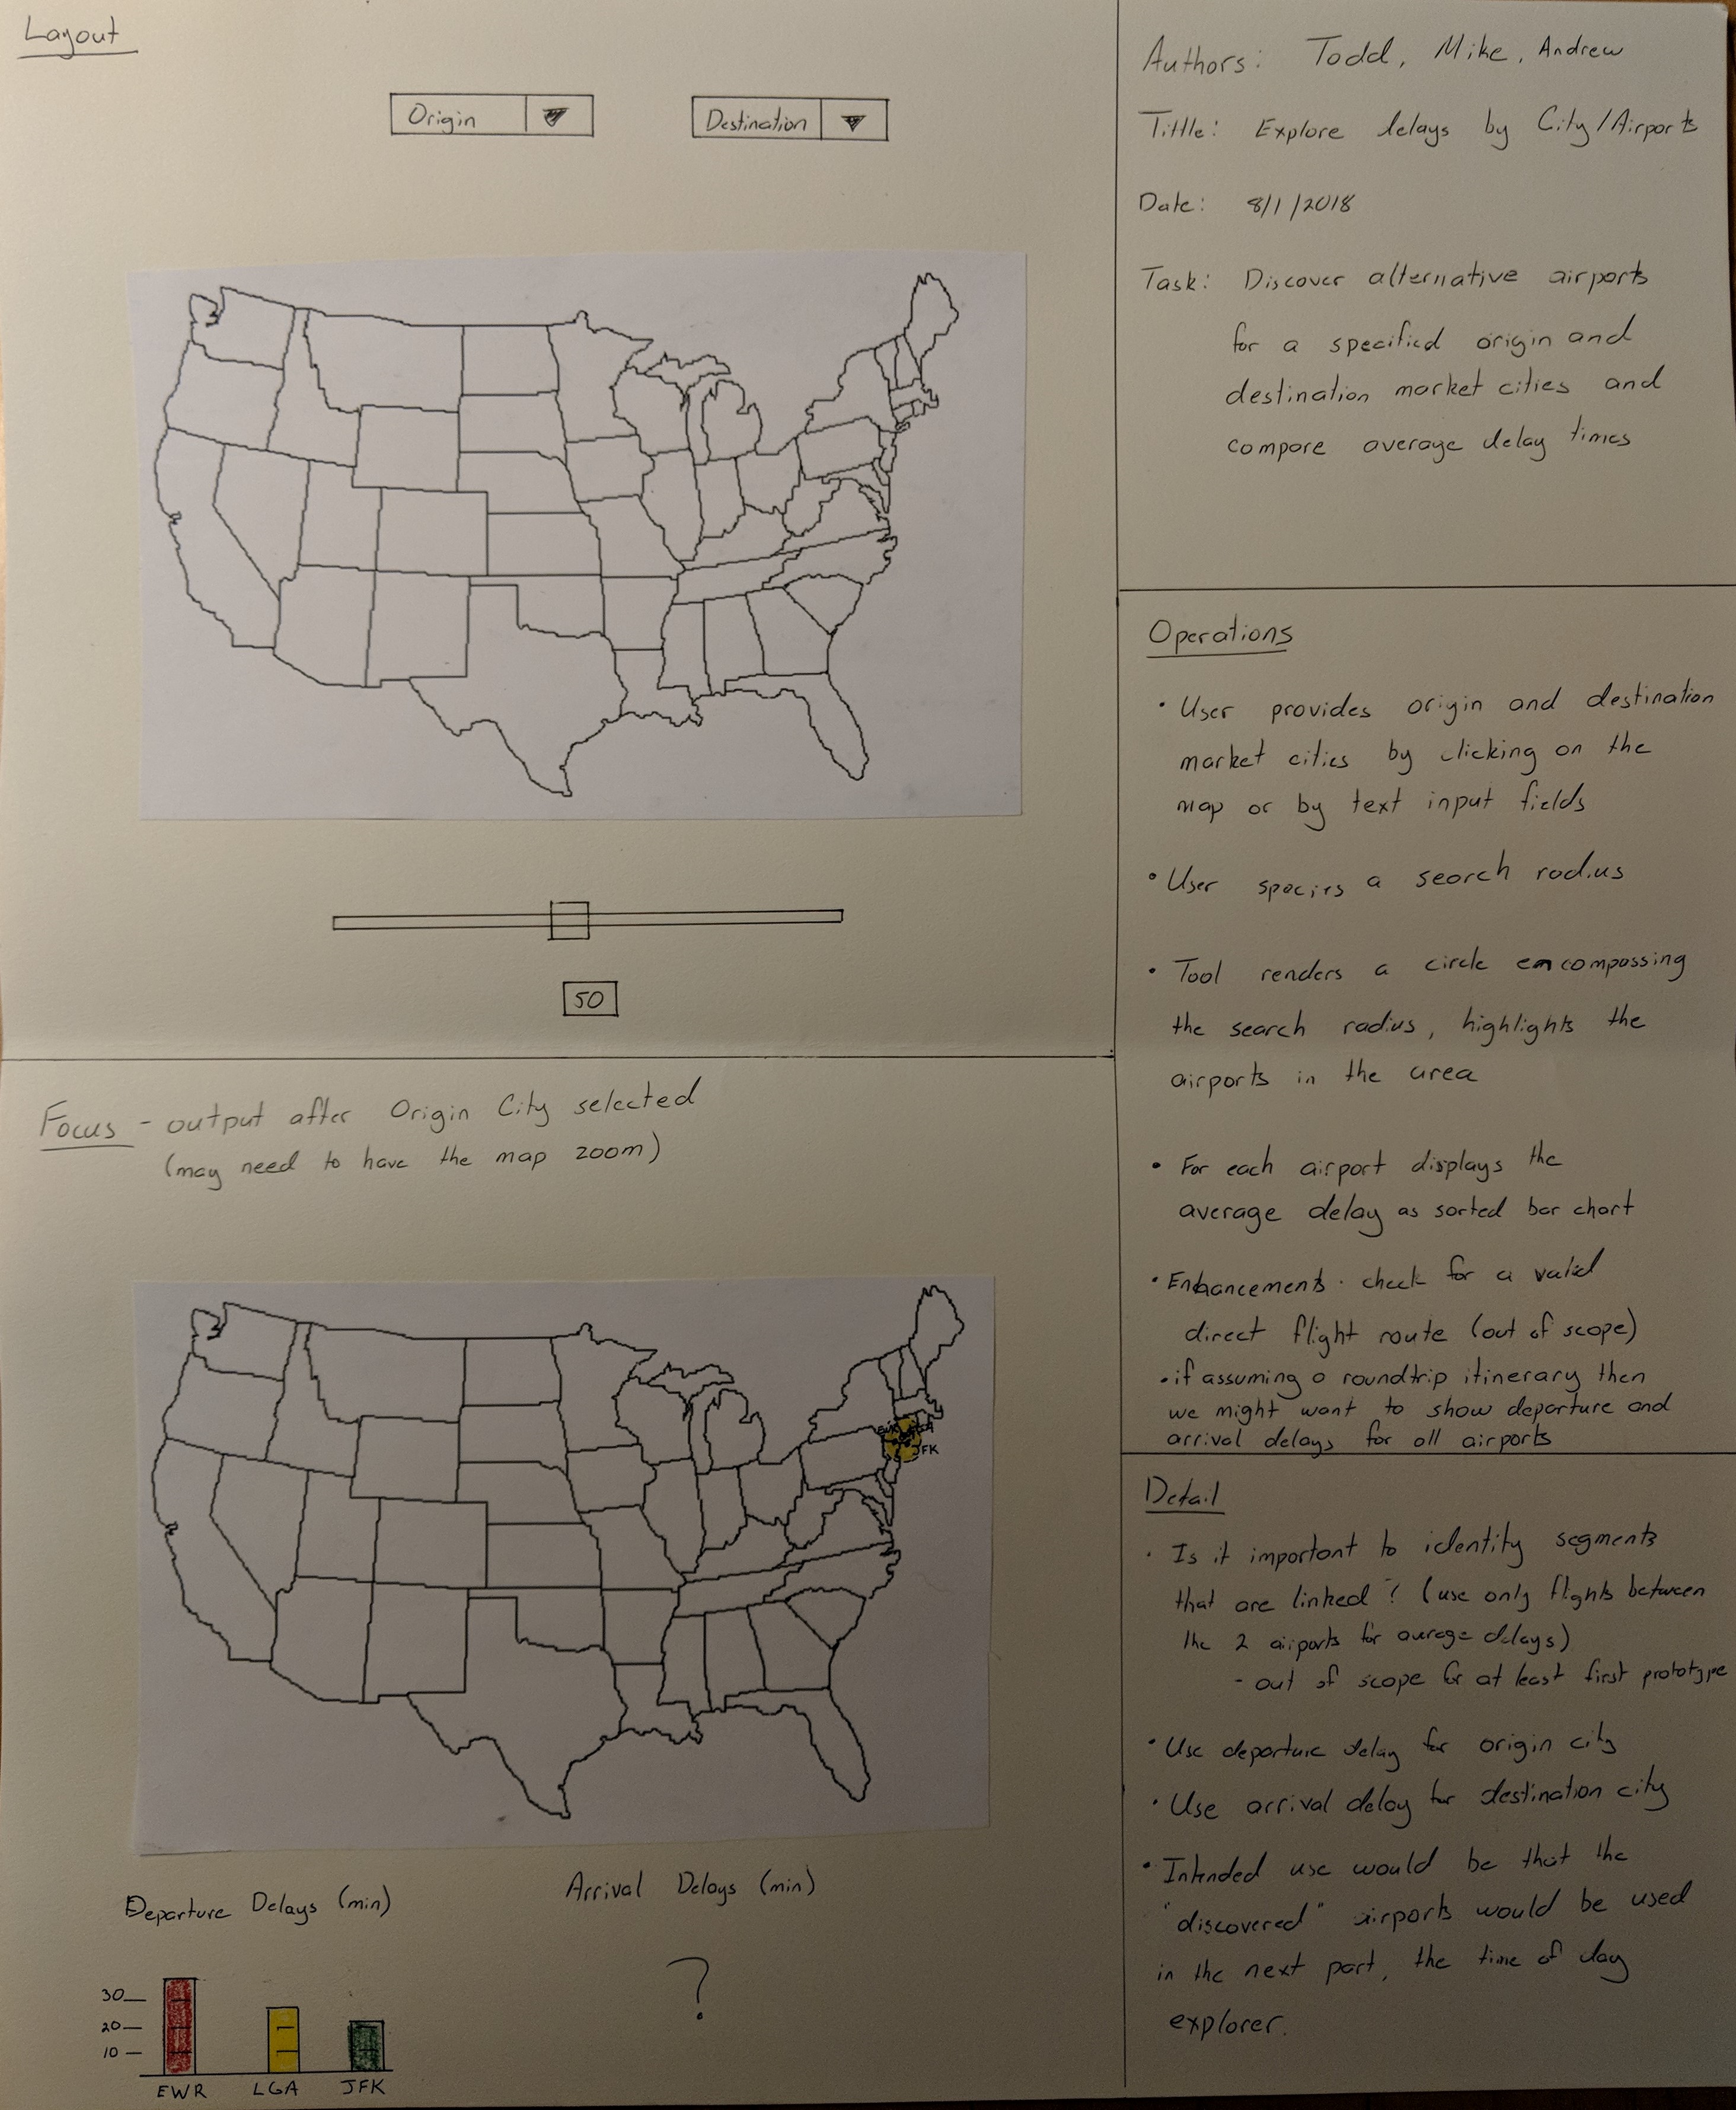 Layout
Origin
Destination
50
Focus - output after Origin City selected
(may need to have the map zoom)
JFK
Departure Delays (min)
30
20
10
EWR LGA JFK
Arrival Delays (min)
?
Authors: Todd, Mike, Andrew
Tittle: Explore delays by City/Airports
Date: 8/1/2018
Task: Discover alternative airports
for a specified origin and
destination market cities and
compare average delay times
Operations
• User provides origin and destination
market cities by clicking on the
map or by text input fields
• User a search radius
• Tool renders a circle encompassing
the search radius, highlights the
airports in the area
• For each airport displays the
average delay as sorted bar chart
• Enhancements · check for a valid
direct flight route (out of scope)
• if assuming a roundtrip itinerary then
we might want to show departure and
arrival delays for all airports
Detail
• Is it important to identity segments
that are linked? (use only flights between
the 2 airports for delays)
- out of scope for at least first prototype
• Use departure delay for origin city
• Use arrival delay for destination city
• Intended use would be that the
"discovered" airports would be used
in the next part, the time of day
explorer.